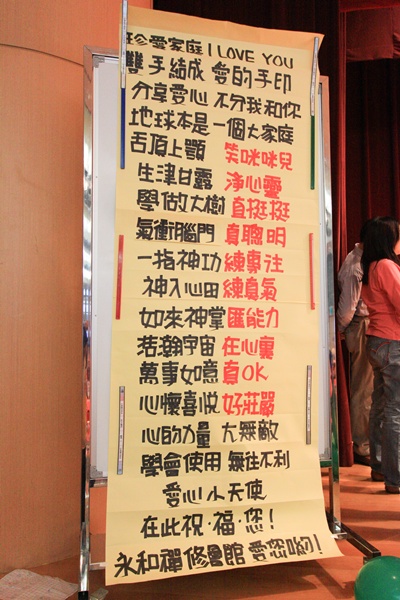 珍愛家庭 I LOVE YOU
雙手結成 愛的手印
分享愛心 不分我和你
地球本是一個大家庭
舌頂上顎 笑咪咪兒
生津甘露 淨心靈
學做大樹 直挺挺
氣衝腦門 真聰明
一指神功 練專注
神入心田 練真氣
如來神掌 匯能力
浩瀚宇宙 在心裏
萬事如意 真OK
心懷喜悅 好莊嚴
心的力量 大無敵
學會使用 無往不利
愛心小天使
在此祝·福·您!
永和禪修會館 愛您喲!